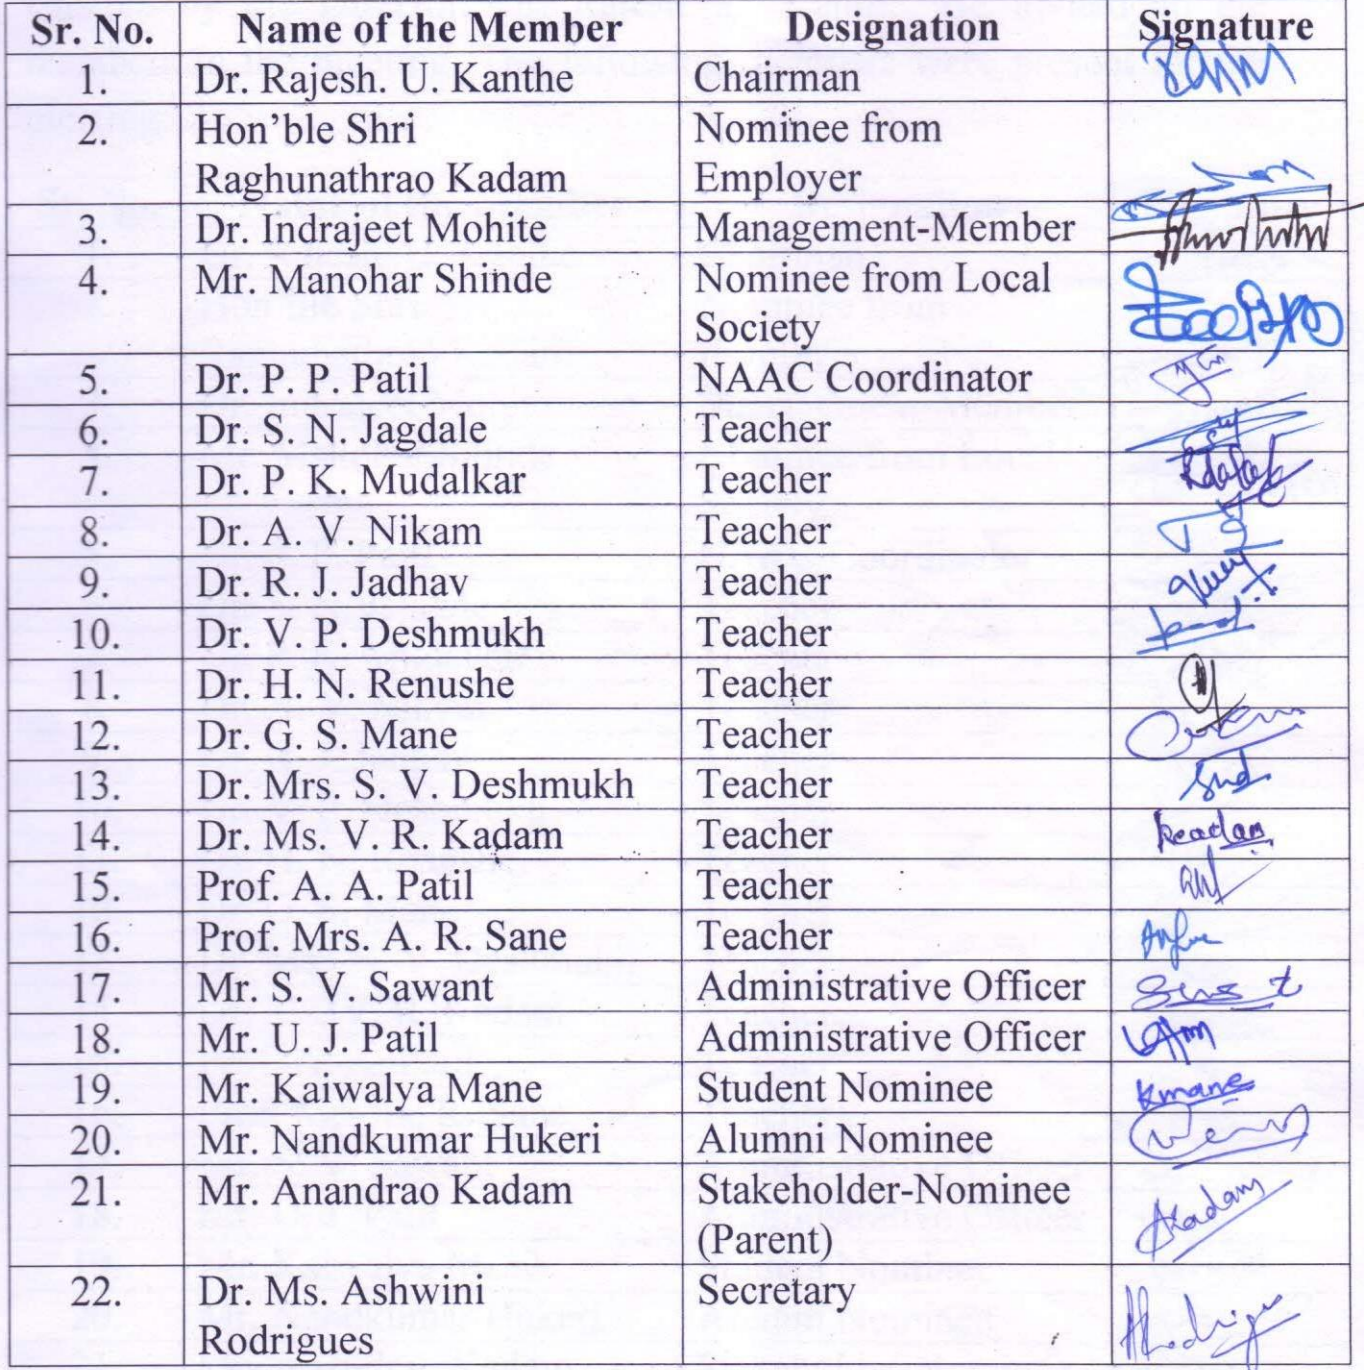 Sr. No. Name of the Member Designation Signature
1. Dr. Rajesh. U. Kanthe Chairman
2. Hon'ble Shri Nominee from
Raghunathrao Kadam Employer
3. Dr. Indrajeet Mohite Management-Member
4. Mr. Manohar Shinde Nominee from Local
Society
5. Dr. P. P. Patil NAAC Coordinator
6. Dr. S. N. Jagdale Teacher
7. Dr. P. K. Mudalkar Teacher
8. Dr. A. V. Nikam Teacher
9. Dr. R. J. Jadhav Teacher
10. Dr. V. P. Deshmukh Teacher
11. Dr. H. N. Renushe Teacher
12. Dr. G. S. Mane Teacher
13. Dr. Mrs. S. V. Deshmukh Teacher
14. Dr. Ms. V. R. Kadam Teacher
15. Prof. A. A. Patil Teacher
16. Prof. Mrs. A. R. Sane Teacher
17. Mr. S. V. Sawant Administrative Officer
18. Mr. U. J. Patil Administrative Officer
19. Mr. Kaiwalya Mane Student Nominee Kmane
20. Mr. Nandkumar Hukeri Alumni Nominee
21. Mr. Anandrao Kadam Stakeholder-Nominee Akadam
(Parent)
22. Dr. Ms. Ashwini Secretary
Rodrigues